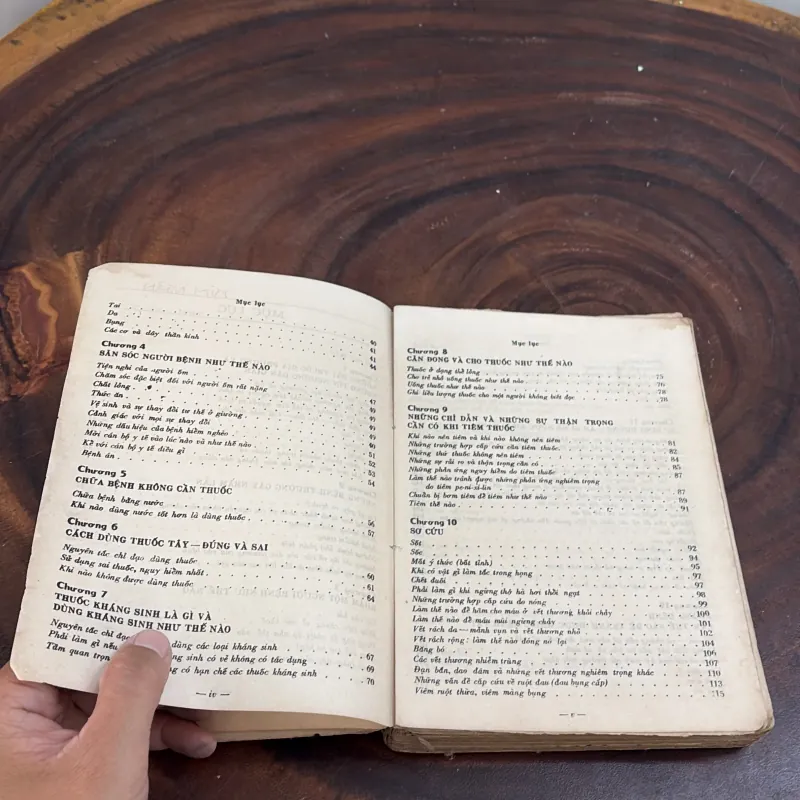 Mục lục
Tai
Da . . . 40
Bụng . . . 41
Các cơ và dây thần kinh . . . 41
Chương 4 . . . 44
SĂN SÓC NGƯỜI BỆNH NHƯ THẾ NÀO
Tiện nghi của người ốm
Chăm sóc đặc biệt đối với người ốm rất nặng
Chất lỏng . . . 47
Thức ăn . . . 49
Vệ sinh và sự thay đổi tư thế ở giường . . . 49
Cảnh giác với mọi sự thay đổi . . . 49
Những dấu hiệu của bệnh hiểm nghèo . . . 49
Mời cán bộ y tế vào lúc nào và như thế nào . . . 50
Kể với cán bộ y tế điều gì . . . 51
Bệnh án . . . 52
53
54
Chương 5
CHỮA BỆNH KHÔNG CẦN THUỐC
Chữa bệnh bằng nước . . . 56
Khi nào dùng nước tốt hơn là dùng thuốc . . . 57
Chương 6
CÁCH DÙNG THUỐC TÂY — ĐÚNG VÀ SAI
Nguyên tắc chỉ đạo dùng thuốc . . . 60
Sử dụng sai thuốc, nguy hiểm nhất . . . 61
Khi nào không được dùng thuốc . . . 64
Chương 7
THUỐC KHÁNG SINH LÀ GÌ VÀ
DÙNG KHÁNG SINH NHƯ THẾ NÀO
Nguyên tắc chỉ đạo dùng các loại kháng sinh
Phải làm gì nếu kháng sinh có vẻ không có tác dụng . . . 67
Tầm quan trọng có hạn chế các thuốc kháng sinh . . . 69
70
— iv —
Mục lục
Chương 8
CÂN ĐONG VÀ CHO THUỐC NHƯ THẾ NÀO
Thuốc ở dạng thể lỏng . . . 75
Cho trẻ nhỏ uống thuốc như thế nào . . . 76
Uống thuốc như thế nào . . . 78
Ghi liều lượng thuốc cho một người không biết đọc . . . 78
Chương 9
NHỮNG CHỈ DẪN VÀ NHỮNG SỰ THẬN TRỌNG
CẦN CÓ KHI TIÊM THUỐC
Khi nào nên tiêm và khi nào không nên tiêm . . . 81
Những trường hợp cấp cứu cần tiêm thuốc . . . 82
Những thứ thuốc không nên tiêm . . . 84
Những sự rủi ro và thận trọng cần có . . . 85
Những phản ứng nguy hiểm do tiêm thuốc . . . 87
Làm thế nào tránh được những phản ứng nghiêm trọng
do tiêm pe-ni-xi-lin . . . 87
Chuẩn bị bơm tiêm để tiêm như thế nào . . . 89
Tiêm thế nào . . . 91
Chương 10
SƠ CỨU
Sốt . . . 92
Sốc . . . 94
Mất ý thức (bất tỉnh) . . . 95
Khi có vật gì làm tắc trong họng . . . 97
Chết đuối . . . 97
Phải làm gì khi ngừng thở hà hơi thổi ngạt . . . 98
Những trường hợp cấp cứu do nóng . . . 99
Làm thế nào để hãm cho máu ở vết thương khỏi chảy . . . 100
Làm thế nào để máu mũi ngừng chảy . . . 101
Vết rách da — mảnh vụn và vết thương nhỏ . . . 102
Vết rách rộng : làm thế nào đóng nó lại . . . 104
Băng bó . . . 106
Các vết thương nhiễm trùng . . . 107
Đạn bắn, dao đâm và những vết thương nghiêm trọng khác . . . 110
Những vấn đề cấp cứu về ruột đau (đau bụng cấp) . . . 113
Viêm ruột thừa, viêm màng bụng . . . 115
— v —